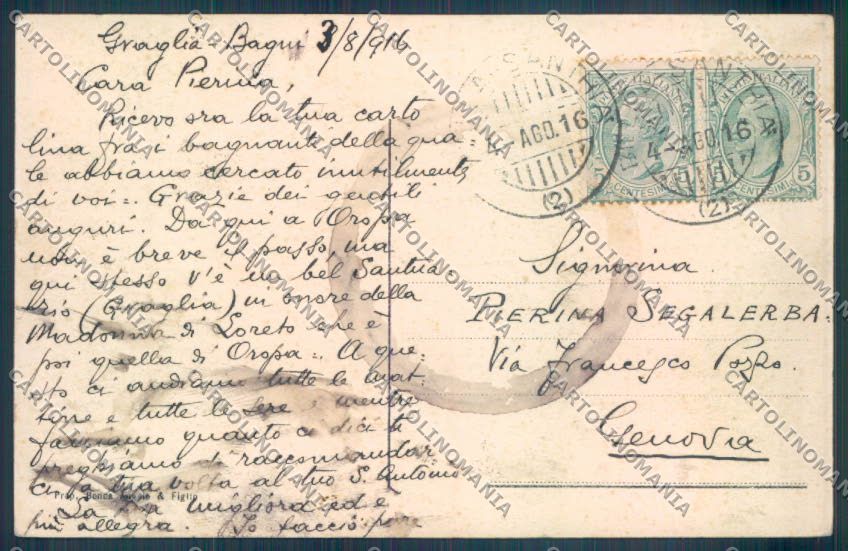 Graglia Bagni 3/8/916
Cara Pierina,
Ricevo ora la tua carto
lina fra i bagnanti della qua=
le abbiamo cercato inutilmente
di voi=. Grazie dei gentili
auguri. Da qui a Oropa
non è breve il passo ma
qui stesso v'è un bel Santua
rio (Graglia) in onore della
Madonna di Loreto che è
poi quella di Oropa=. A que=
sto ci andiamo tutte le mat=
tine e tutte le sere e mentre
faremmo quanto ci dici ti
preghiamo di raccomandar
ci a tua volta al tuo S. Antonio
Prop. Bonda & Figlio
La migliora ed è
più allegra. Io faccio pure
AGO.16
(2)
4 AGO.16
(2)
CENTESIMI 5
5 CENTESIMI 5
Signorina
PIERINA SEGALERBA=
Via Francesco Pozzo.
Genova
CARTOLINOMANIA